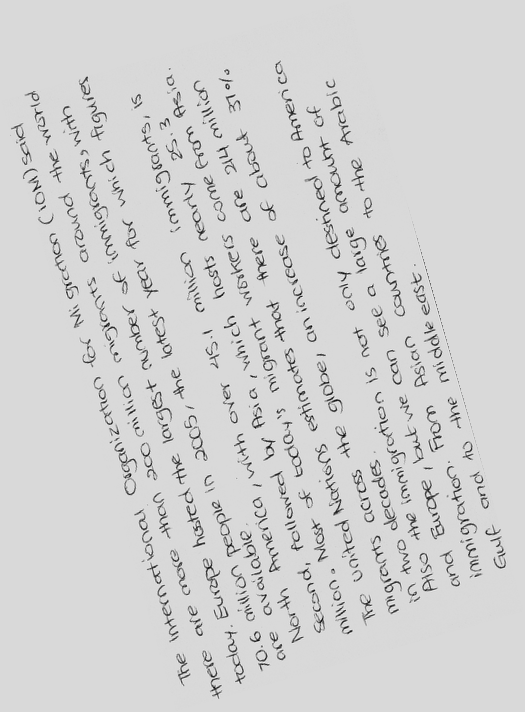 The International Organization for Migration (IOM) said
there are more than 200 million migrants around the world
today. Europe hosted the largest number of immigrants, with
70.6 million people in 2005, the latest year for which figures
are available.
North America, with over 45.1 million immigrants, is
second, followed by Asia, which hosts nearly 25.3
million. Most of today's migrant workers come from Asia.
The United Nations estimates that there are 214 million
migrants across the globe, an increase of about 37%
in two decades.
Also the immigration is not only destined to America
and Europe, but we can see a large amount of
immigration. From Asian countries to the Arabic
Gulf and to the middle east.